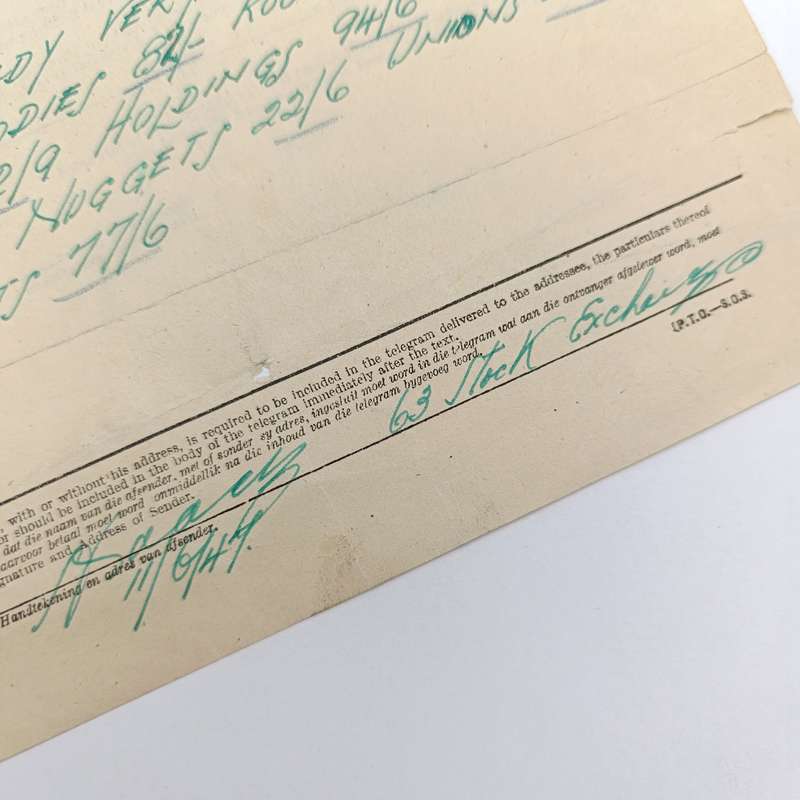 82/-
HOLDINGS 94/6
2/9 NUGGETS 22/6 UNIONS
77/6
with or without his address, is required to be included in the telegram delivered to the addressee, the particulars thereof
or should be included in the body of the telegram immediately after the text.
dat die naam van die afsender, met of sonder sy adres, ingesluit moet word in die telegram wat aan die ontvanger afgelewer word, moet
aarvoor betaal moet word onmiddellik na die inhoud van die telegram bygevoeg word.
gnature and Address of Sender.
63 Stock Exchange
Handtekening en adres van afsender.
(P.T.O.—S.O.S.
11/6/47.